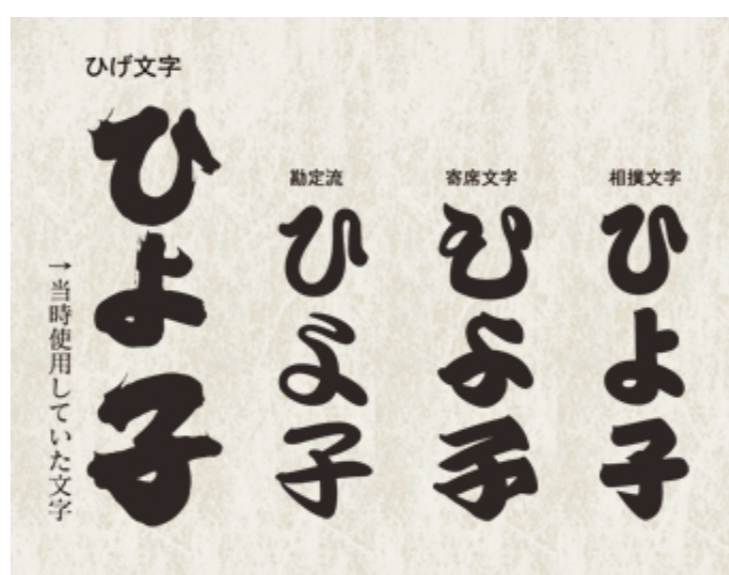 ひげ文字
ひよ子
→当時使用していた文字
勘定流
ひよ子
寄席文字
ひよ子
相撲文字
ひよ子